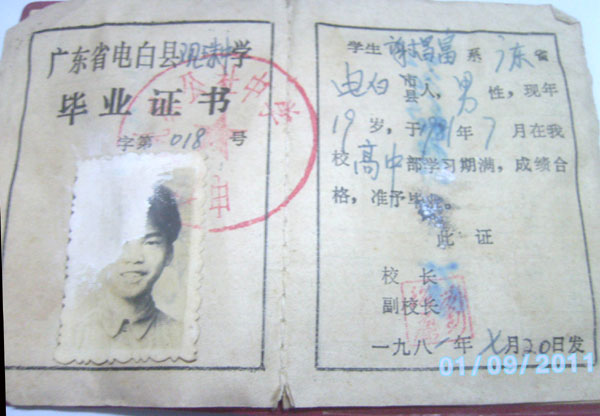 广东省电白县观珠中学
毕业证书
字第 018 号
学生 谢昌富 系 广东 省
电白 市县 人，男 性，现年
19 岁，于 1981 年 7 月在我
校 高中 部学习期满，成绩合
格，准予毕业。
此证
校长
副校长
一九八一年 七 月 20 日发
01/09/2011